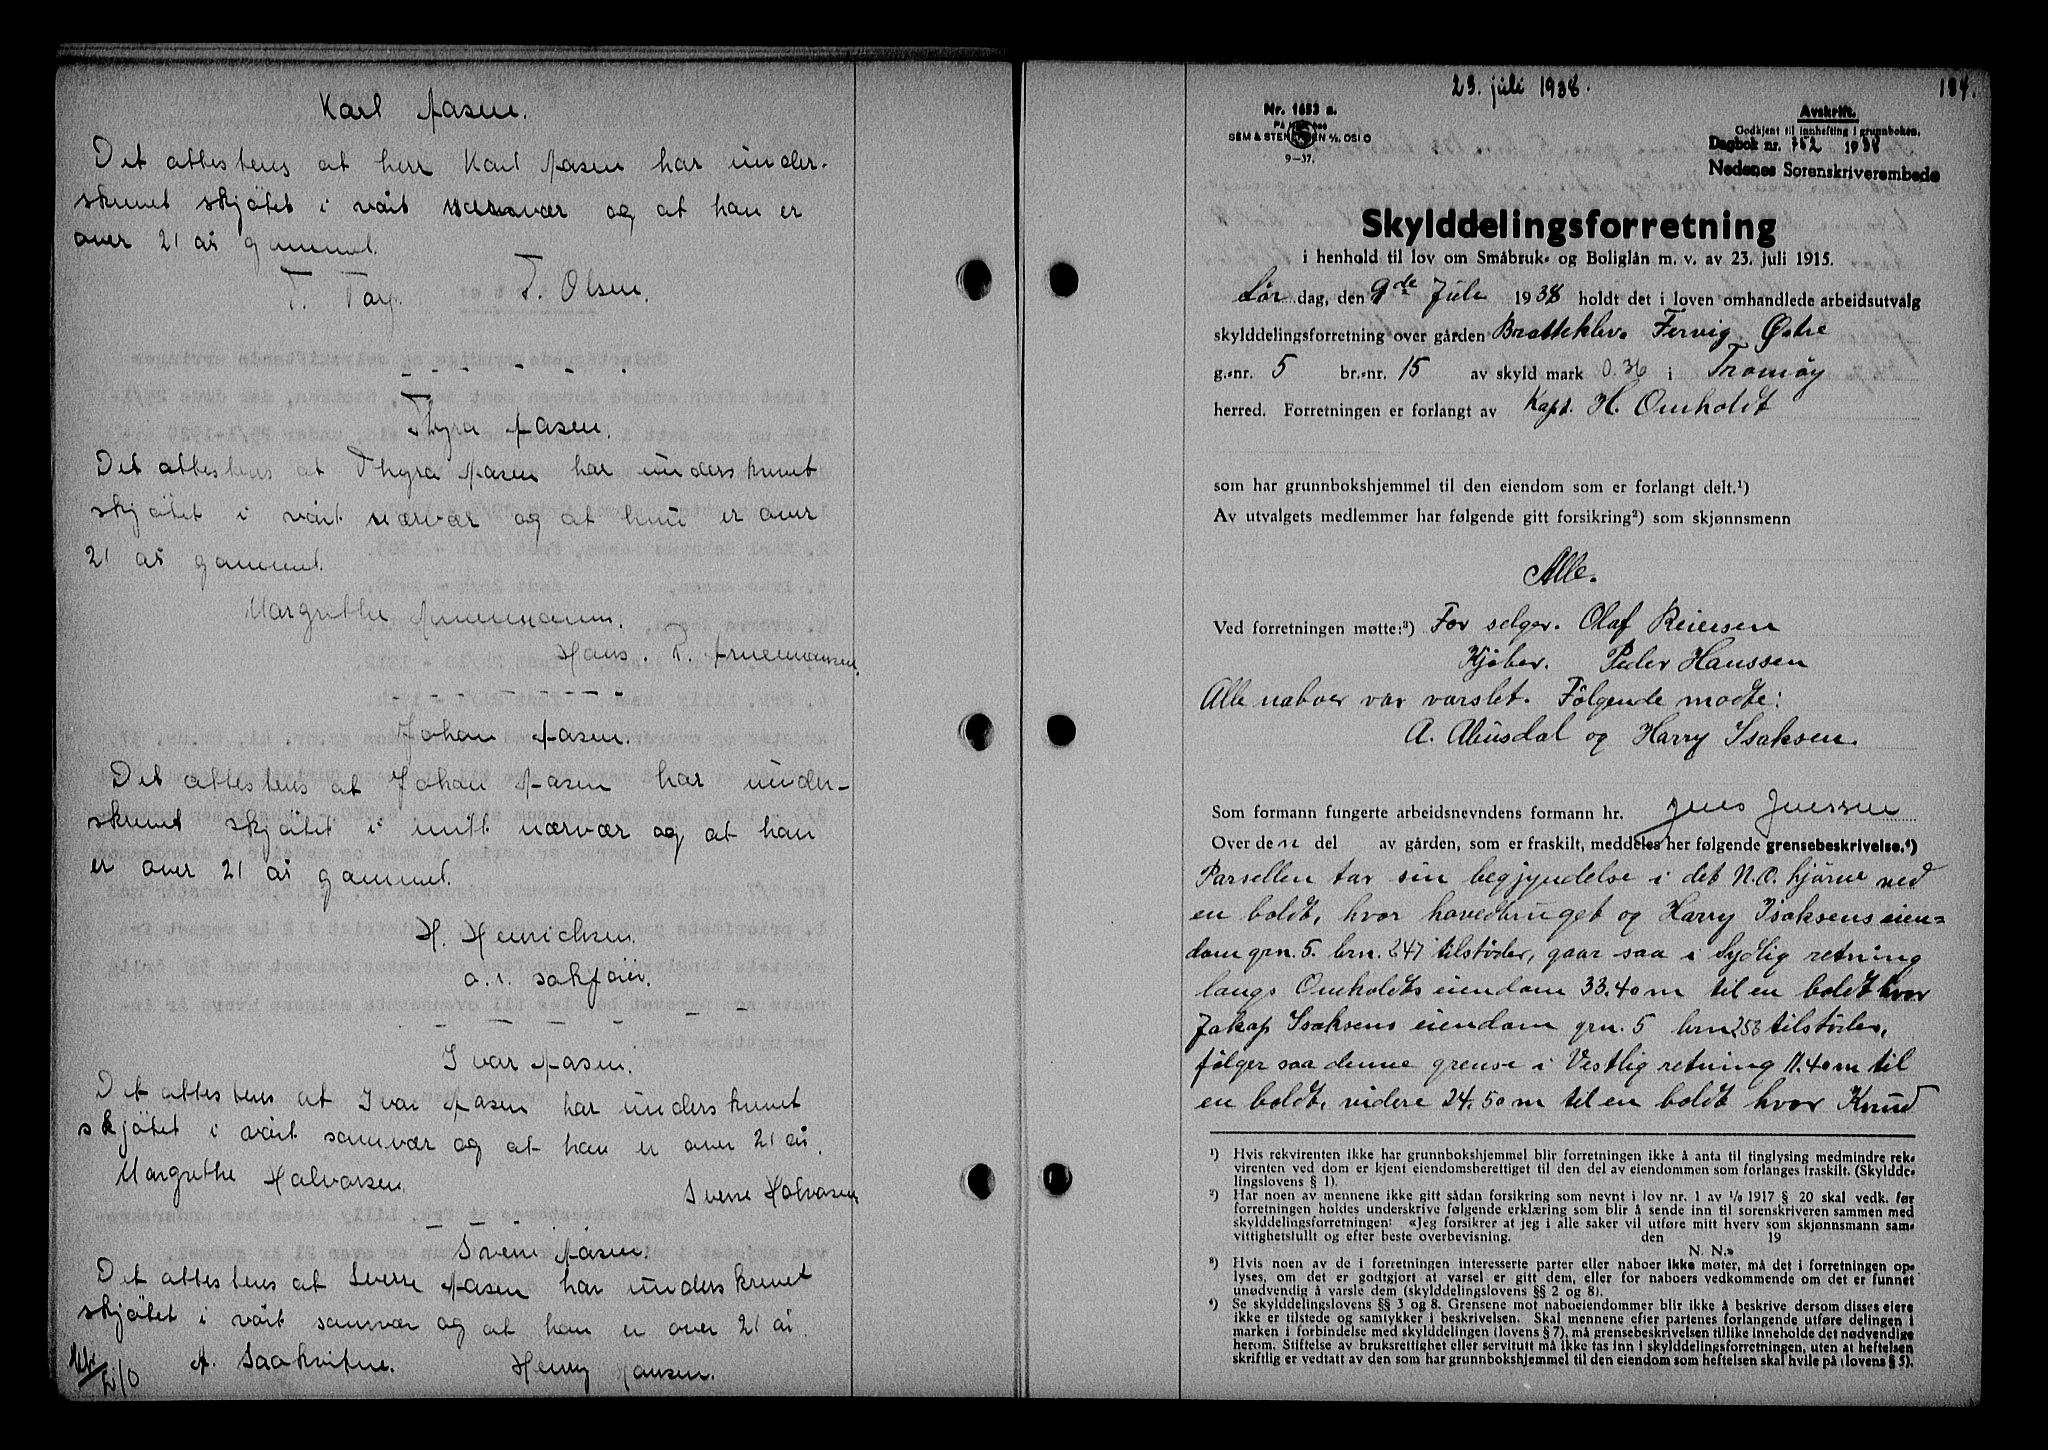 Karl Aasen.
Det attesteres at herr Karl Aasen har under-
skrevet skjøtet i vårt nærvær og at han er
over 21 år gammel.
T. Foy. T. Olsen.
Thyra Aasen.
Det attesteres at Thyra Aasen har underskrevet
skjøtet i vårt nærvær og at hun er over
21 år gammel.
Margrethe
Hans. T. Arnemansen
Johan Aasen.
Det attesteres at Johan Aasen har under-
skrevet skjøtet i mitt nærvær og at han
er over 21 år gammel.
H. Henrichsen.
o.r. sakfører.
Ivar Aasen.
Det attesteres at Ivar Aasen har underskrevet
skjøtet i vårt samvær og at han er over 21 år.
Margrethe Halvorsen. Sverre Halvorsen
Sverre Aasen.
Det attesteres at Sverre Aasen har underskrevet
skjøtet i vårt samvær og at han er over 21 år.
Henry Hansen.
23. juli 1938. 184.
Nr. 1653 a.
SEM & STENERSEN A/S, OSLO
9-37.
Avskrift.
Godkjent til innhefting i grunnboken.
Dagbok nr. 762 1938
Nedenes Sorenskriverembede
Skylddelingsforretning
i henhold til lov om Småbruk- og Boliglån m. v. av 23. juli 1915.
Lør dag, den 9de Juli 1938 holdt det i loven omhandlede arbeidsutvalg
skylddelingsforretning over gården Bratteklev. Fervig Østre
g.-nr. 5 br.-nr. 15 av skyld mark 0.36 i Tromøy
herred. Forretningen er forlangt av Kapt. H. Omholdt
som har grunnbokshjemmel til den eiendom som er forlangt delt.¹)
Av utvalgets medlemmer har følgende gitt forsikring²) som skjønnsmenn
Alle.
Ved forretningen møtte:³) For selger. Olaf Reiersen
Kjøber. Peder Hanssen
Alle naboer var varslet. Følgende møtte:
A. Abusdal og Harry Isaksen.
Som formann fungerte arbeidsnevndens formann hr. Jens Jenssen
Over den del av gården, som er fraskilt, meddeles her følgende grensebeskrivelse.⁴)
Parsellen tar sin begynndelse i det N.O. hjørne ved
en boldt, hvor hovedbruget og Harry Isaksens eien-
dom grn. 5. brn. 247 tilstøder, gaar saa i Sydlig retning
langs Omholdts eiendom 33.40 m til en boldt hvor
Jakop Isaksens eiendom grn. 5 brn 258 tilstøder,
følger saa denne grense i Vestlig retning 11.40 m til
en boldt, videre 24.50 m til en boldt hvor Knud
¹) Hvis rekvirenten ikke har grunnbokshjemmel blir forretningen ikke å anta til tinglysing medmindre rek-
virenten ved dom er kjent eiendomsberettiget til den del av eiendommen som forlanges fraskilt. (Skyldde-
lingslovens § 1).
²) Har noen av mennene ikke gitt sådan forsikring som nevnt i lov nr. 1 av 1/8 1917 § 20 skal vedk. før
forretningen holdes underskrive følgende erklæring som blir å sende inn til sorenskriveren sammen med
skylddelingsforretningen: «Jeg forsikrer at jeg i alle saker vil utføre mitt hverv som skjønnsmann sam-
vittighetsfullt og efter beste overbevisning. den 19
N. N.»
³) Hvis noen av de i forretningen interesserte parter eller naboer ikke møter, må det i forretningen op-
lyses, om det er godtgjort at varsel er gitt dem, eller for naboers vedkommende om det er funnet
unødvendig å varsle dem (skylddelingslovens §§ 2 og 8).
⁴) Se skylddelingslovens §§ 3 og 8. Grensene mot naboeiendommer blir ikke å beskrive dersom disses eiere
ikke er tilstede og samtykker i beskrivelsen. Skal mennene efter partenes forlangende utføre delingen i
marken i forbindelse med skylddelingen (lovens § 7), må grensebeskrivelsen tillike inneholde det nødvendige
herom. Stiftelse av bruksrettighet eller servitutt må ikke tas inn i skylddelingsforretningen, uten at heftelsen
skriftlig er vedtatt av den som har grunnbokshjemmel til den eiendom som heftelsen skal hvile på (lovens § 5).